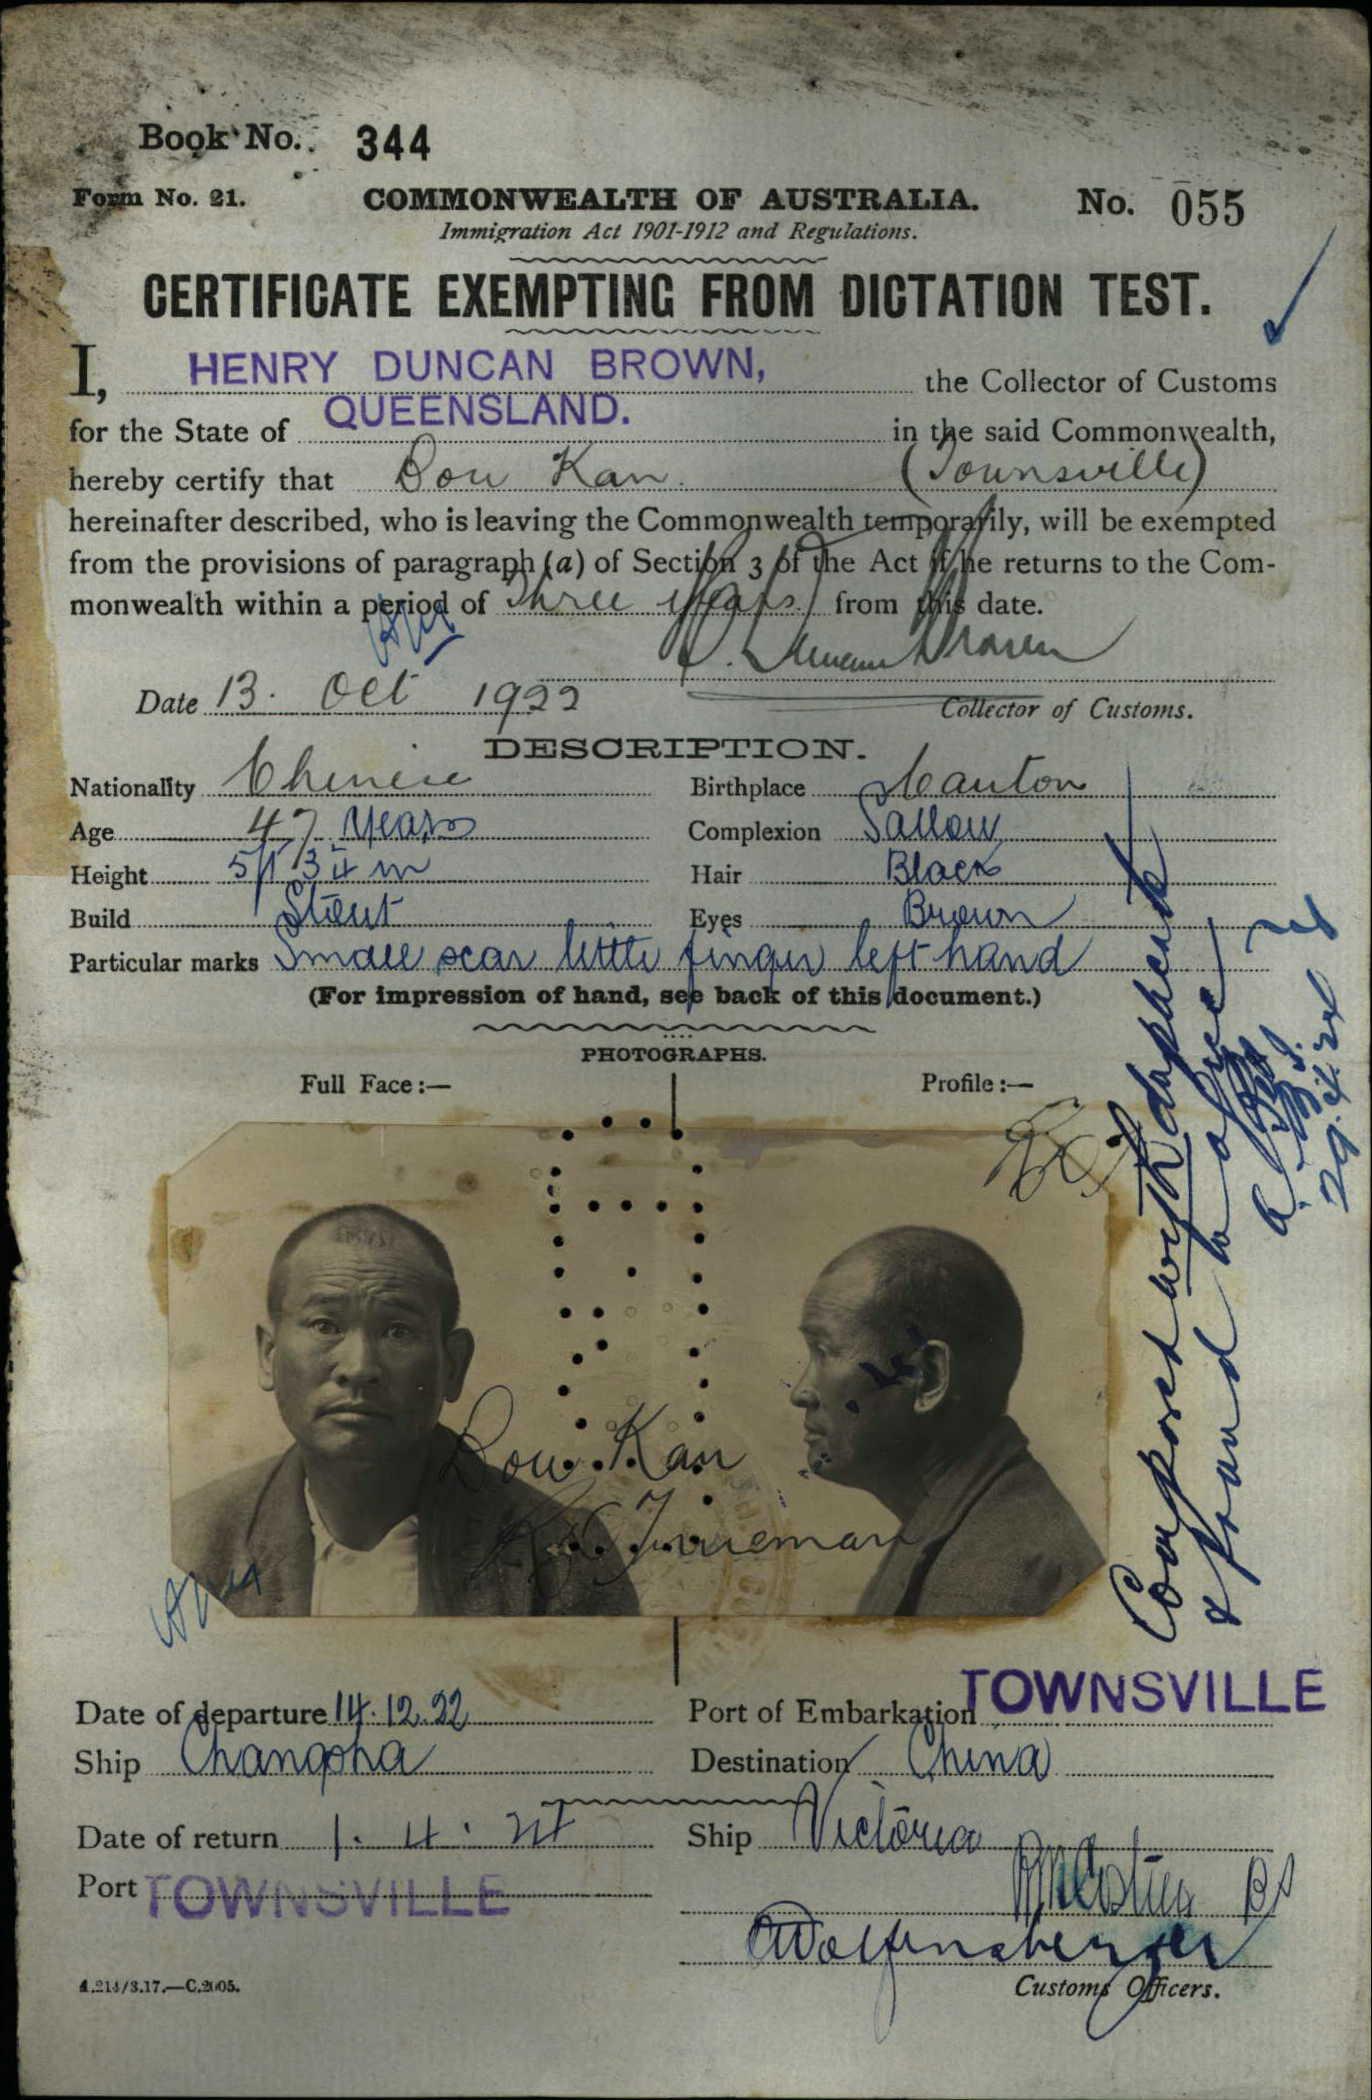 Book No. 344
Form No. 21. COMMONWEALTH OF AUSTRALIA. No. 055
Immigration Act 1901-1912 and Regulations.
CERTIFICATE EXEMPTING FROM DICTATION TEST.
I, HENRY DUNCAN BROWN, the Collector of Customs
for the State of QUEENSLAND. in the said Commonwealth,
hereby certify that Dou Kan (Townsville)
hereinafter described, who is leaving the Commonwealth temporarily, will be exempted
from the provisions of paragraph (a) of Section 3 of the Act if he returns to the Com-
monwealth within a period of Three years from this date.
Date 13. Oct 1922 Collector of Customs.
DESCRIPTION.
Nationality Chinese Birthplace Canton
Age 47 years Complexion Sallow
Height 5ft 3¼ in Hair Black
Build Stout Eyes Brown
Particular marks Small scar little finger left hand
(For impression of hand, see back of this document.)
PHOTOGRAPHS.
Full Face:— Profile:—
Dou Kan
Trueman
Compared with duplicate
& found to agree
29.4.24
Date of departure 14.12.22 Port of Embarkation TOWNSVILLE
Ship Changsha Destination China
Date of return 1.4.24 Ship Victoria
Port TOWNSVILLE
Customs Officers.
A.214/3.17.—C.2005.